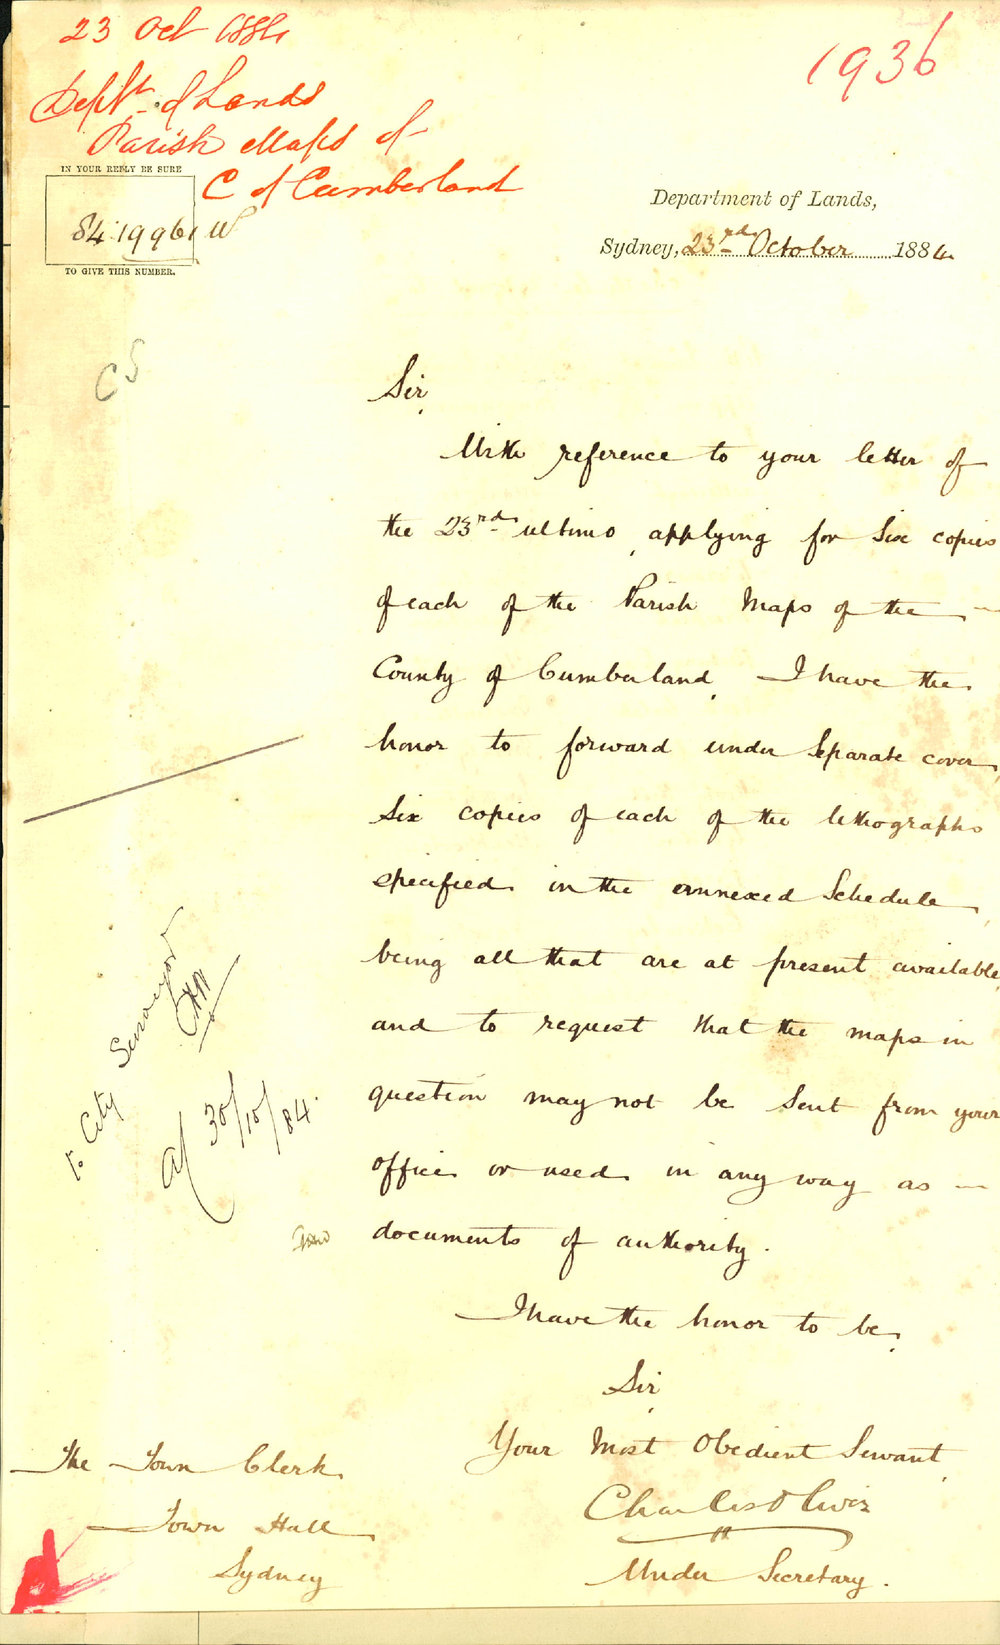 23 Oct 1884
1936
Deptt of Lands
Parish Maps of
C of Cumberland
IN YOUR REPLY BE SURE
84.19961 W
TO GIVE THIS NUMBER.
Department of Lands,
Sydney, 23rd October 1884.
CS
Sir,
With reference to your letter of
the 23rd ultimo, applying for Six copies
of each of the Parish Maps of the
County of Cumberland, I have the
honor to forward under Separate cover,
Six copies of each of the lithographs
specified in the annexed Schedule,
being all that are at present available,
and to request that the maps in
question may not be Sent from your
office or used in any way as
documents of authority.
To City Surveyor
30/10/84.
I have the honor to be,
Sir,
Your Most Obedient Servant,
Charles Oliver
Under Secretary.
The Town Clerk
Town Hall
Sydney